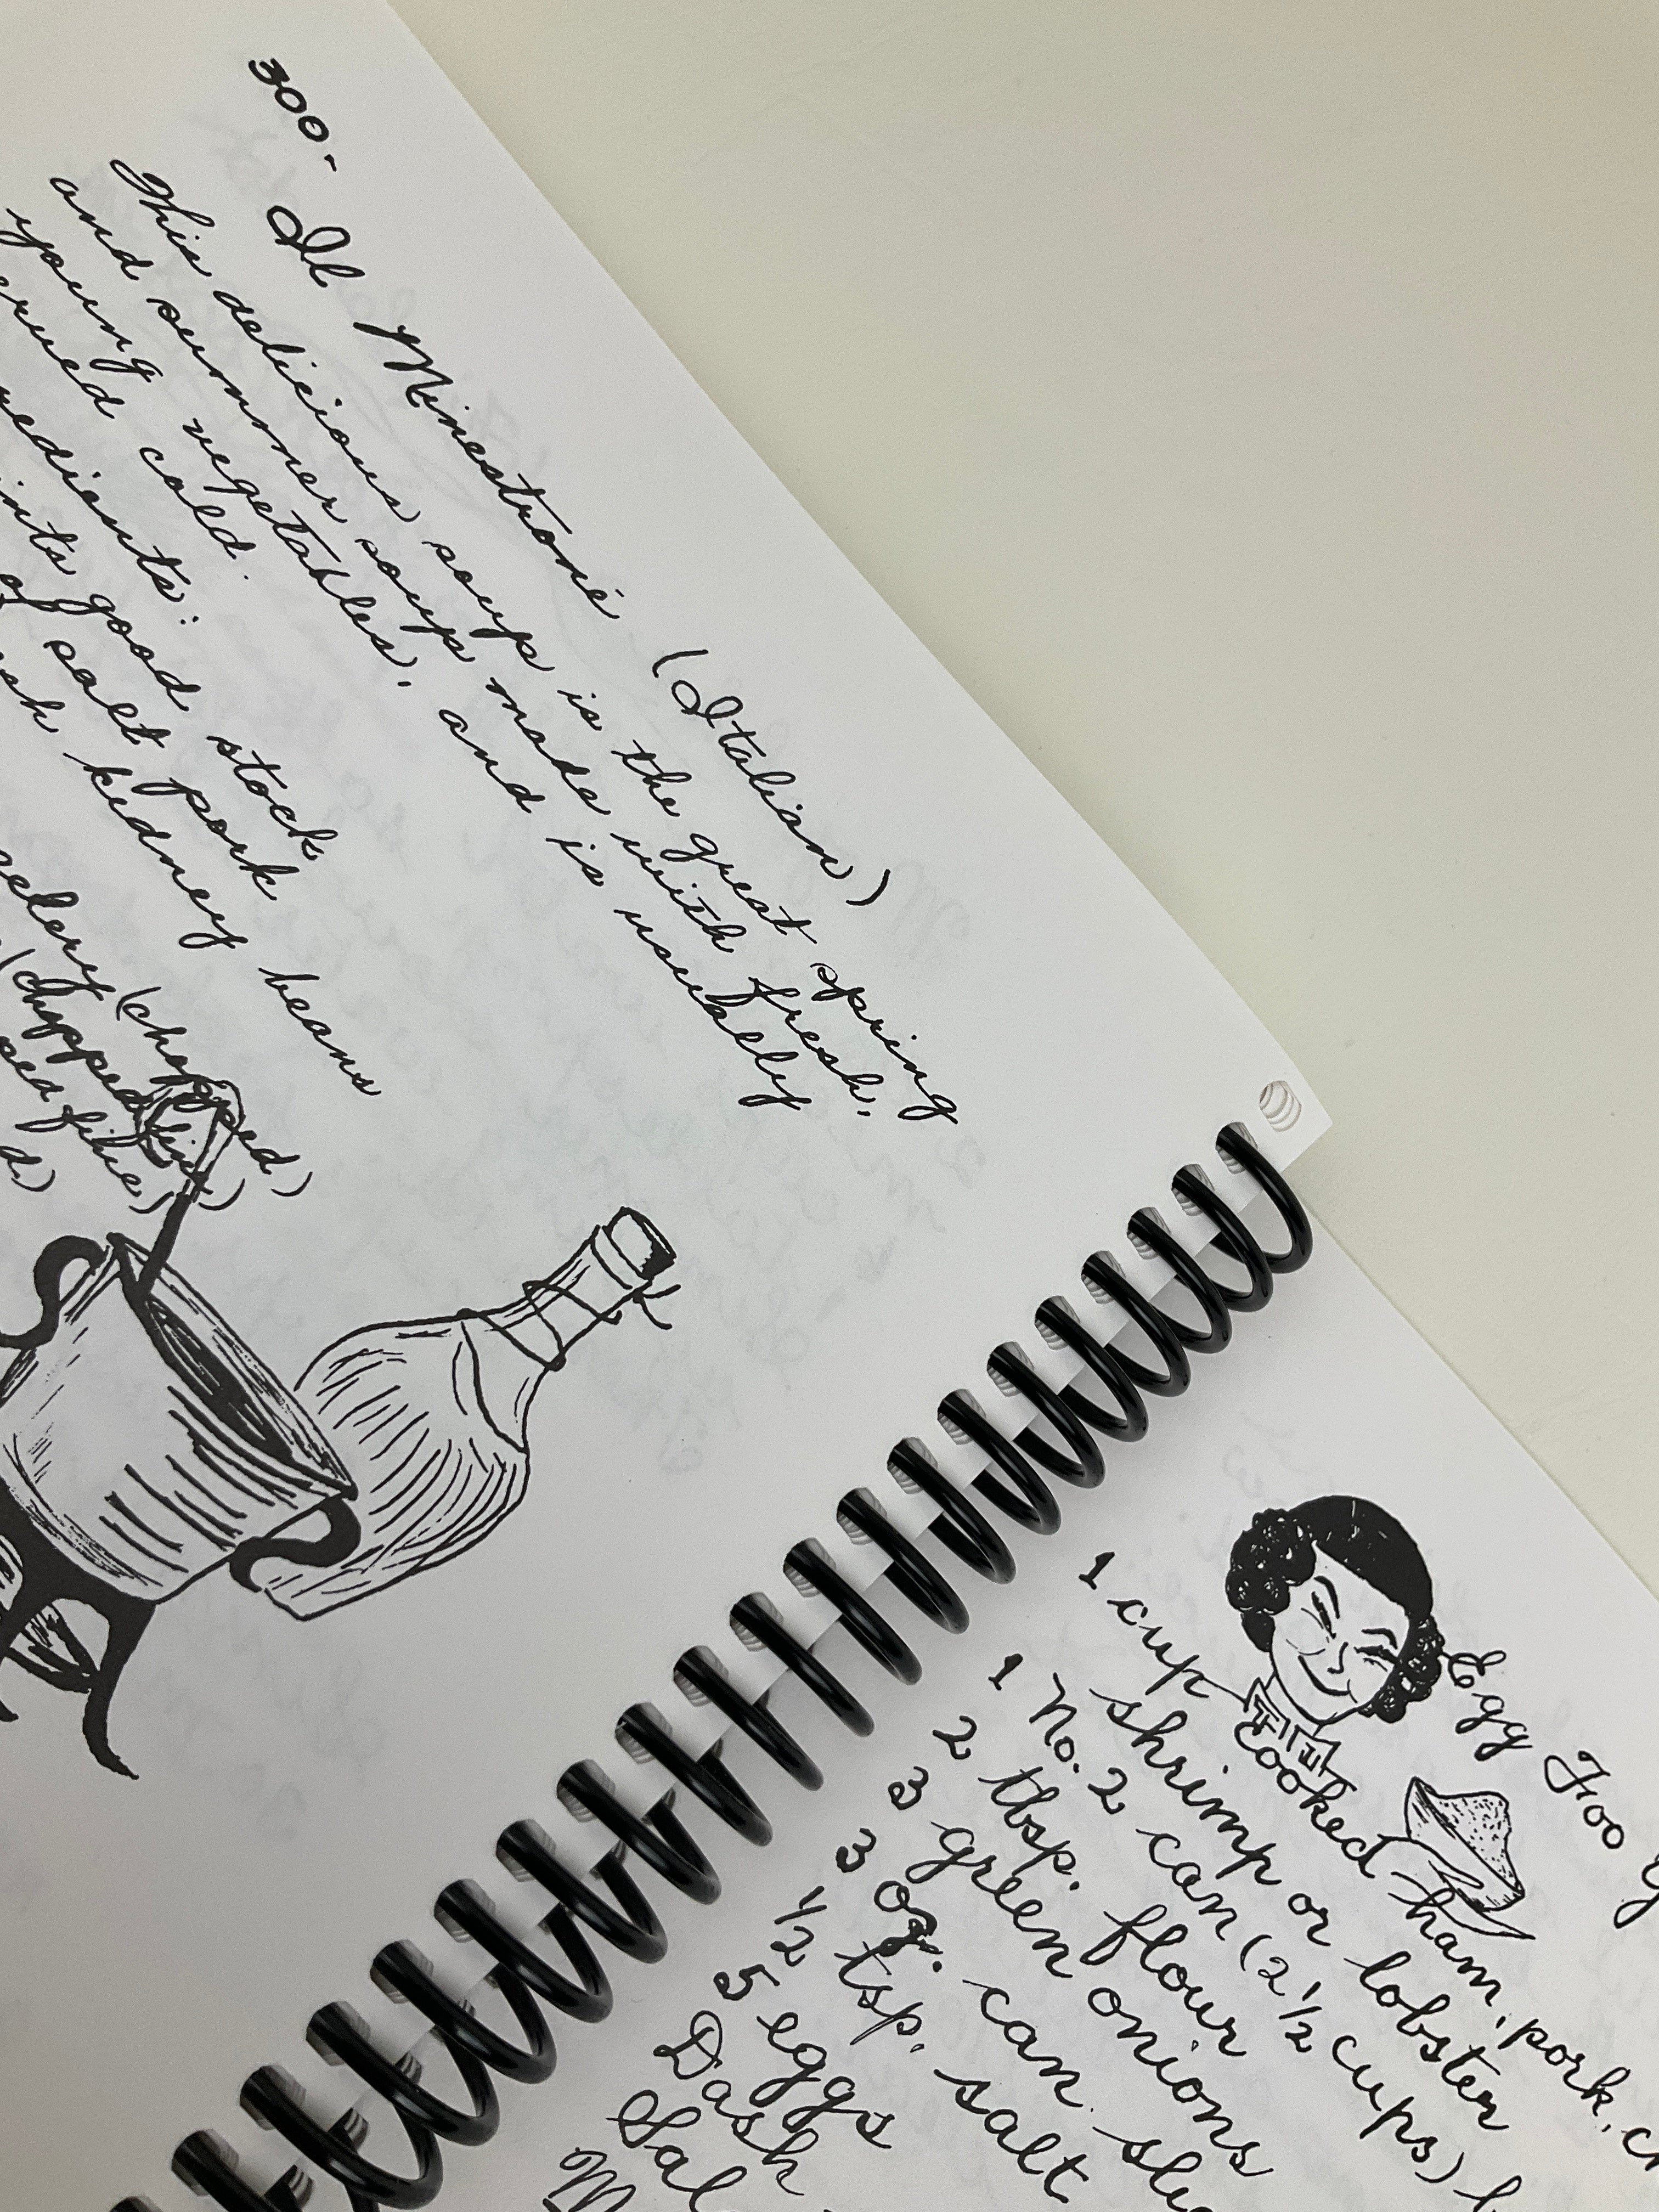 300-
Il Minestrone (Italian)
This delicious soup is the great spring
and summer soup made with fresh,
young vegetables, and is usually
served cold.
good stock
salt pork
kidney beans
celery (chopped)
(chopped fine)
fine)
Egg Foo
1 cup cooked ham, pork,
shrimp or lobster
1 No. 2 can (2 1/2 cups)
2 tbsp. flour
3 green onions
3 oz. can
1/2 tsp. salt
5 eggs
Dash